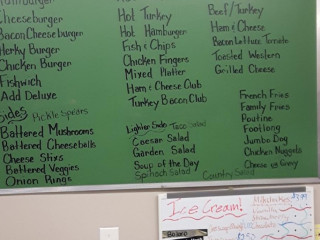 Hamburger
Cheeseburger
Bacon Cheeseburger
Herky Burger
Chicken Burger
Fishwich
Add Deluxe
Sides Pickle Spears
Battered Mushrooms
Battered Cheeseballs
Cheese Stixs
Battered Veggies
Onion Rings
Hot Turkey
Hot Hamburger
Fish & Chips
Chicken Fingers
Mixed Platter
Ham & Cheese Club
Turkey Bacon Club
Lighter Side Taco Salad
Caesar Salad
Garden Salad
Soup of the Day
Spinach Salad
Beef/Turkey
Ham & Cheese
Bacon Lettuce Tomato
Toasted Western
Grilled Cheese
French Fries
Family Fries
Poutine
Footlong
Jumbo Dog
Chicken Nuggets
Cheese or Gravy
Ice Cream!
Milkshakes